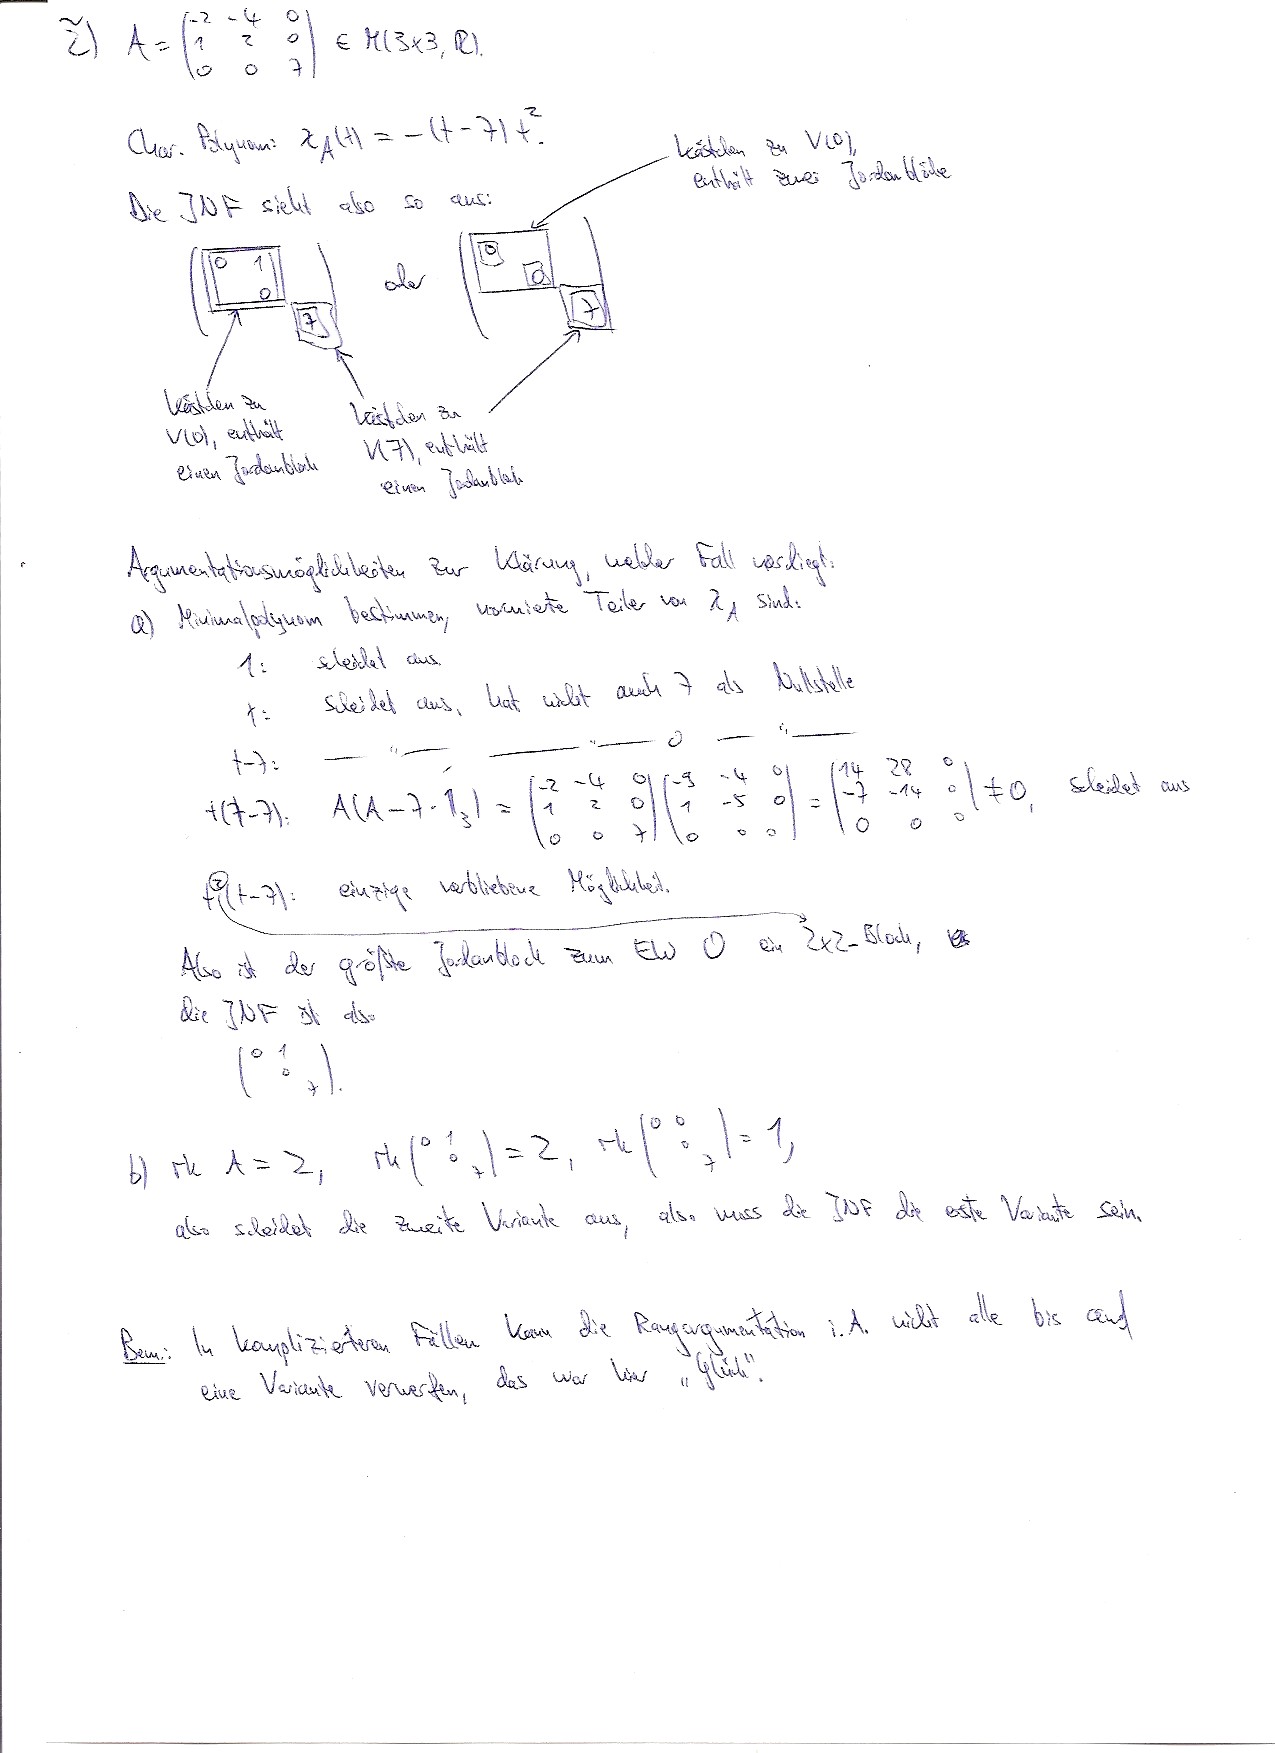 2̃) A = (-2 -4 0
1 2 0
0 0 7) ∈ M(3×3, ℝ).
Char. Polynom: χ_A(t) = -(t-7)t².
Kästchen zu V(0),
enthält zwei Jordanblöcke
Die JNF sieht also so aus:
(0 1
0
7) oder (0
0
7)
Kästchen zu
V(0), enthält
einen Jordanblock
Kästchen zu
V(7), enthält
einen Jordanblock
Argumentationsmöglichkeiten zur Klärung, welcher Fall vorliegt:
a) Minimalpolynom bestimmen, normierte Teiler von χ_A sind:
1: scheidet aus.
t: scheidet aus, hat nicht auch 7 als Nullstelle
t-7: — " — , — " — 0 — " —
t(t-7): A(A-7·1₃) = (-2 -4 0
1 2 0
0 0 7) (-9 -4 0
1 -5 0
0 0 0) = (14 28 0
-7 -14 0
0 0 0) ≠ 0, scheidet aus
t²(t-7): einzige verbliebene Möglichkeit.
Also ist der größte Jordanblock zum EW 0 ein 2x2-Block,
die JNF ist also
(0 1
0
7).
b) rk A = 2, rk (0 1
0
7) = 2, rk (0 0
0
7) = 1,
also scheidet die zweite Variante aus, also muss die JNF die erste Variante sein.
Bem.: In komplizierteren Fällen kann die Rangargumentation i.A. nicht alle bis auf
eine Variante verwerfen, das war hier „Glück".